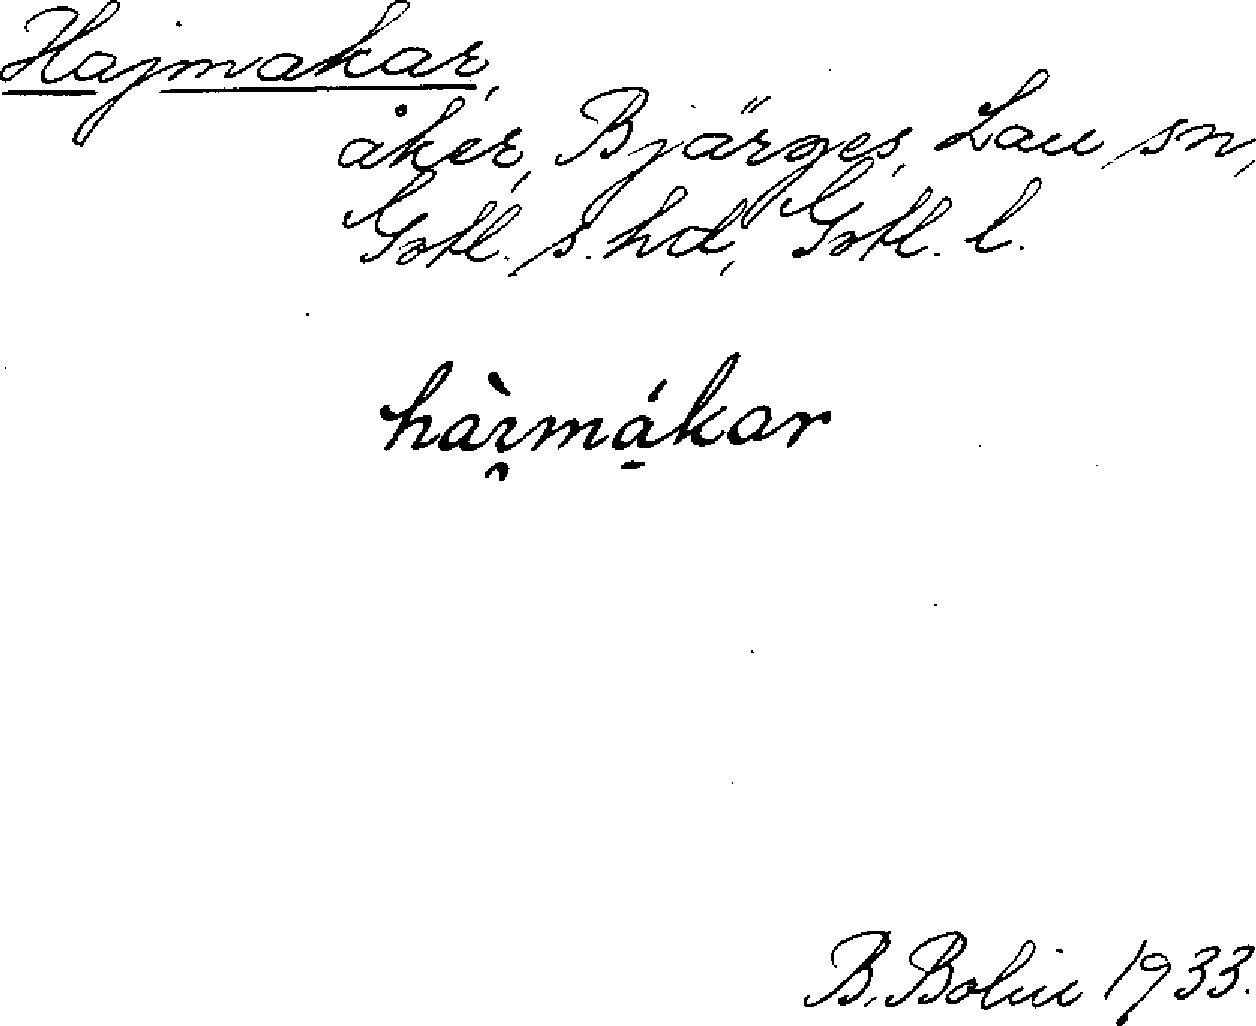 Hajmakar,
åker, Bjärges, Lau sn,
Gotl. s. hd, Gotl. l.
hàɪ̯má̱kar
B. Bolin 1933.